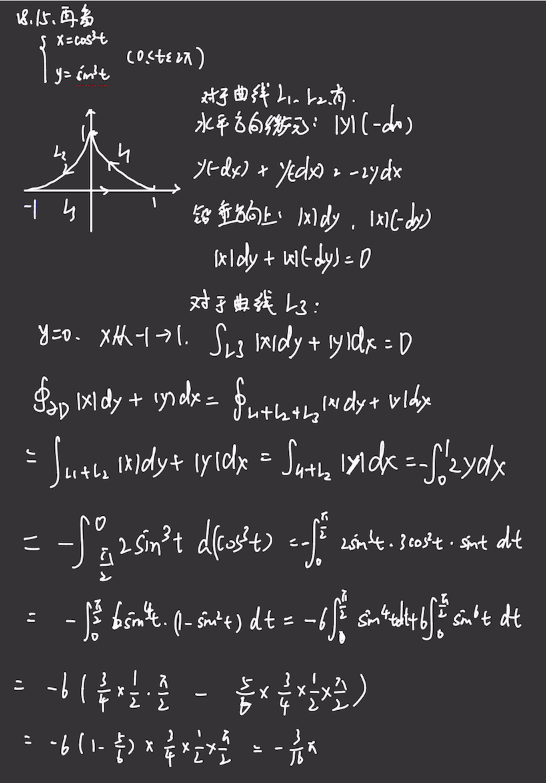 18.15.再多
{ x=cos³t
y=sin³t (0≤t≤2π)
对于曲线L₁、L₂有.
水平方向微元: |y|(-dx)
y(-dx) + y(-dx) = -2ydx
铅垂方向上: |x|dy, |x|(-dy)
|x|dy + |x|(-dy) = 0
1
L₂ L₁
-1 L₃ 1
对于曲线L3:
y=0. x从-1→1. ∫_{L3} |x|dy + |y|dx = 0
∮_{∂D} |x|dy + |y|dx = ∮_{L1+L2+L3} |x|dy + |y|dx
= ∫_{L1+L2} |x|dy + |y|dx = ∫_{L1+L2} |y|dx = -∫_0^1 2ydx
= -∫_{π/2}^0 2sin³t d(cos³t) = -∫_0^{π/2} 2sin³t·3cos²t·sint dt
= -∫_0^{π/2} 6sin⁴t·(1-sin²t)dt = -6∫_0^{π/2} sin⁴tdt+6∫_0^{π/2} sin⁶t dt
= -6(3/4×1/2·π/2 - 5/6×3/4×1/2×π/2)
= -6(1-5/6)×3/4×1/2×π/2 = -3/16π